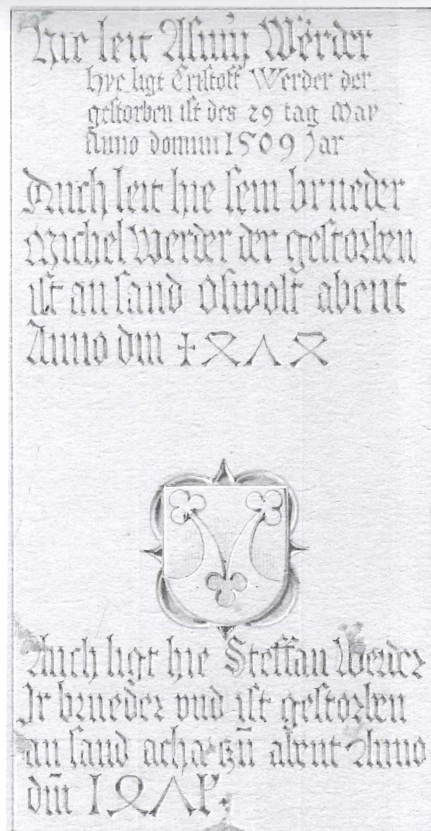 Hie leit Werder
hye ligt Cristoff Werder der
gestorben ist des 29 tag May
Anno domini 1509 Jar
Auch leit hie sein brueder
Michel Werder der gestorben
ist an sand Oswolt abent
Anno dm 1474
Auch ligt hie Steffan Werder
Ir brueder vnd ist gestorben
an sand achatzn̄ abent Anno
dm̄ 1475